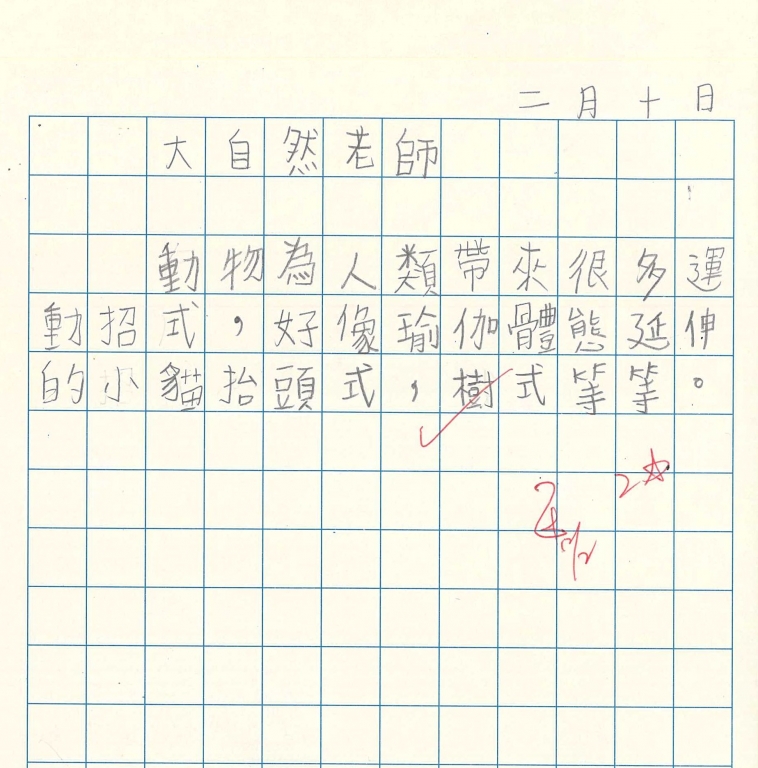 二月十日
大自然老師
動物為人類帶來很多運
動招式，好像瑜伽體態延伸
的小貓抬頭式，樹式等等。
2☆